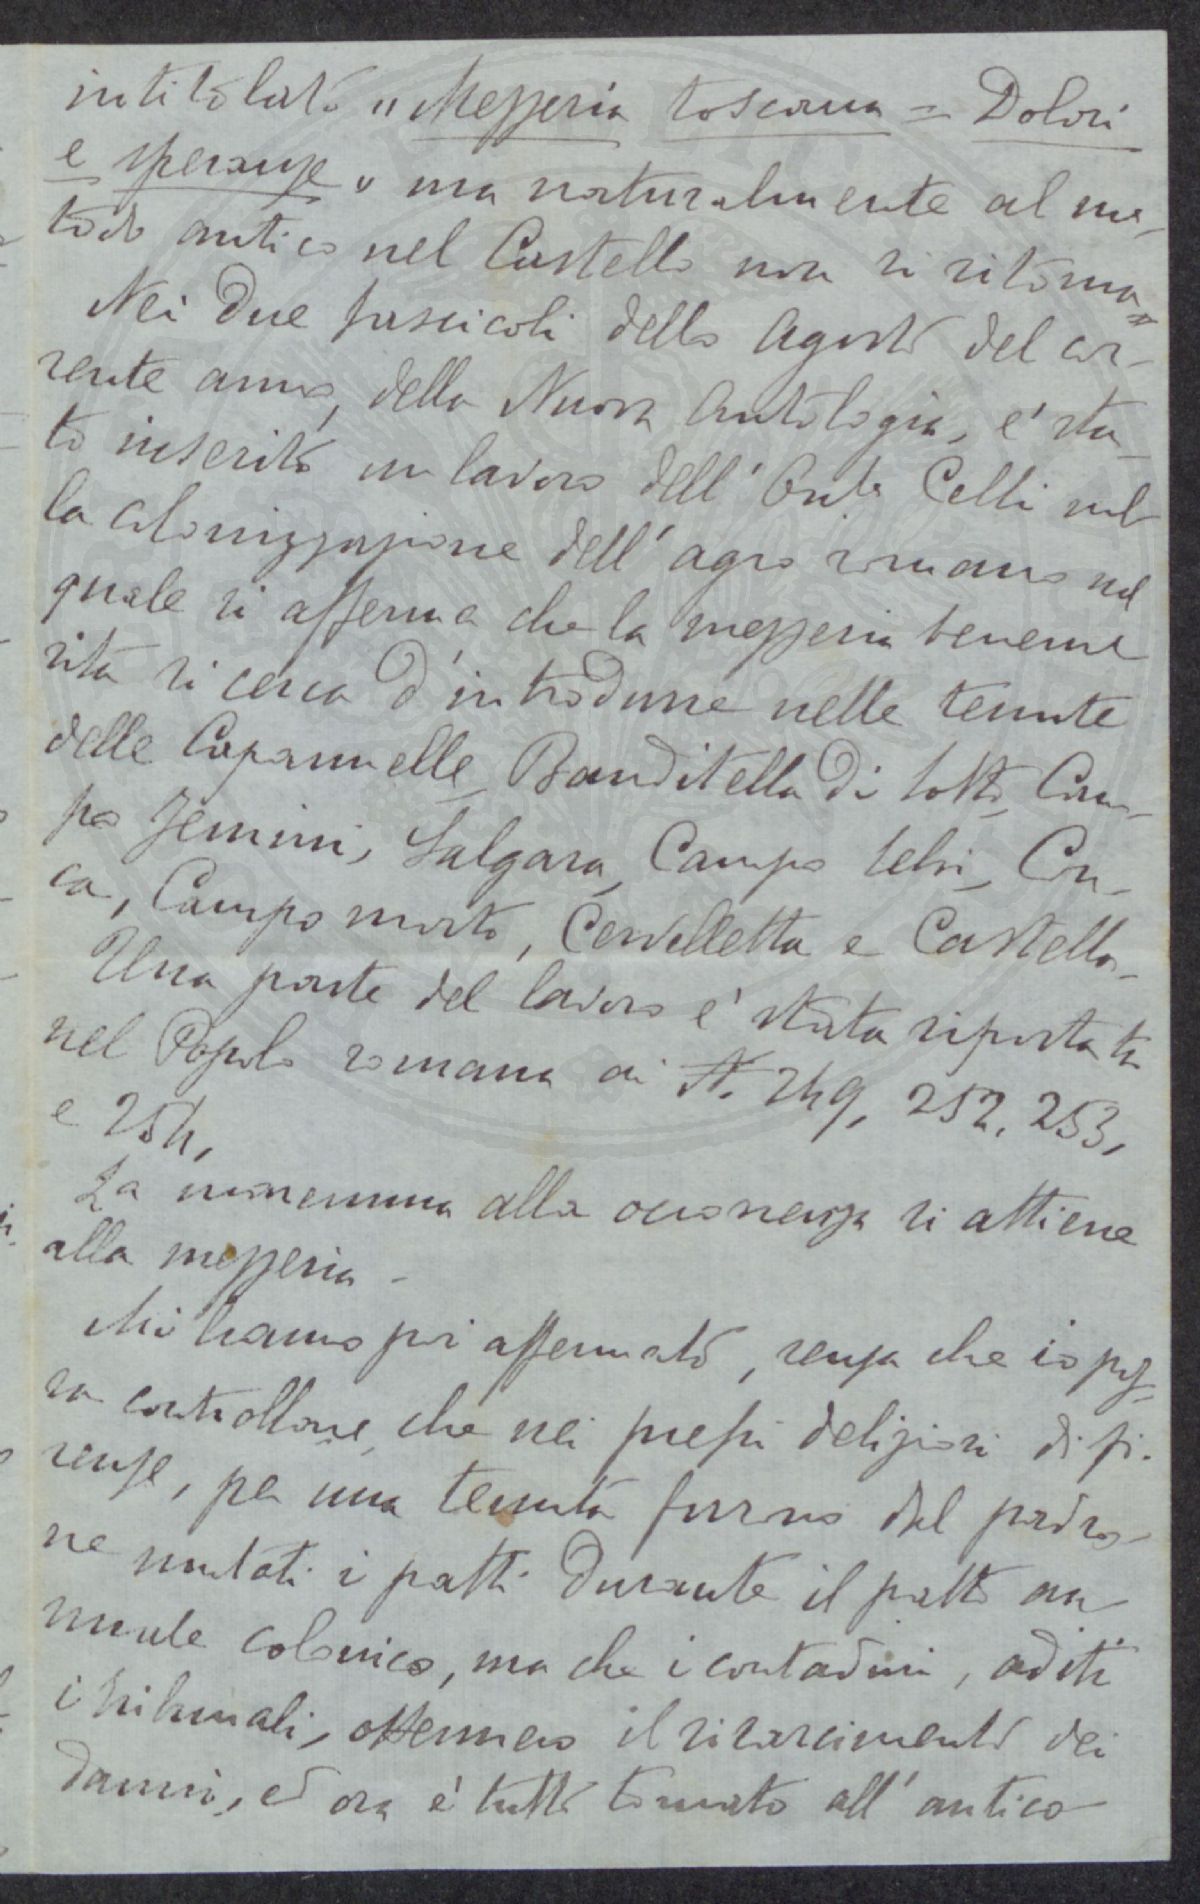 intitolato "Mezzeria toscana = Dolori
e speranze" ma naturalmente al me-
todo antico nel Castello non si ritorna =
Nei due fascicoli dello Agosto del cor-
rente anno, della Nuova Antologia, e' sta-
to inserito un lavoro dell' On.le Celli sul-
la colonizzazione dell' agro romano nel
quale si afferma che la mezzeria beneme
rita si cerca d'introdurre nelle tenute
delle Capannelle, Banditella di sotto, Cam-
po Jemini, Salgara, Campo Selvi, Con-
ca, Campo morto, Cervelletta e Castello-
Una parte del lavoro e' stata riportata
nel Popolo romana ai N. 249, 252, 253,
e 254,
La maremma alla occorrenza si attiene
alla mezzeria -
Mi hanno poi affermato, senza che io pos-
sa controllare, che nei pressi deliziosi di fi-
renze, per una tenuta furono dal padro-
ne mutati i patti durante il patto an
nuale colonico, ma che i contadini, aditi
i tribunali, ottennero il risarcimento dei
danni, ed ora e' tutto tornato all' antico